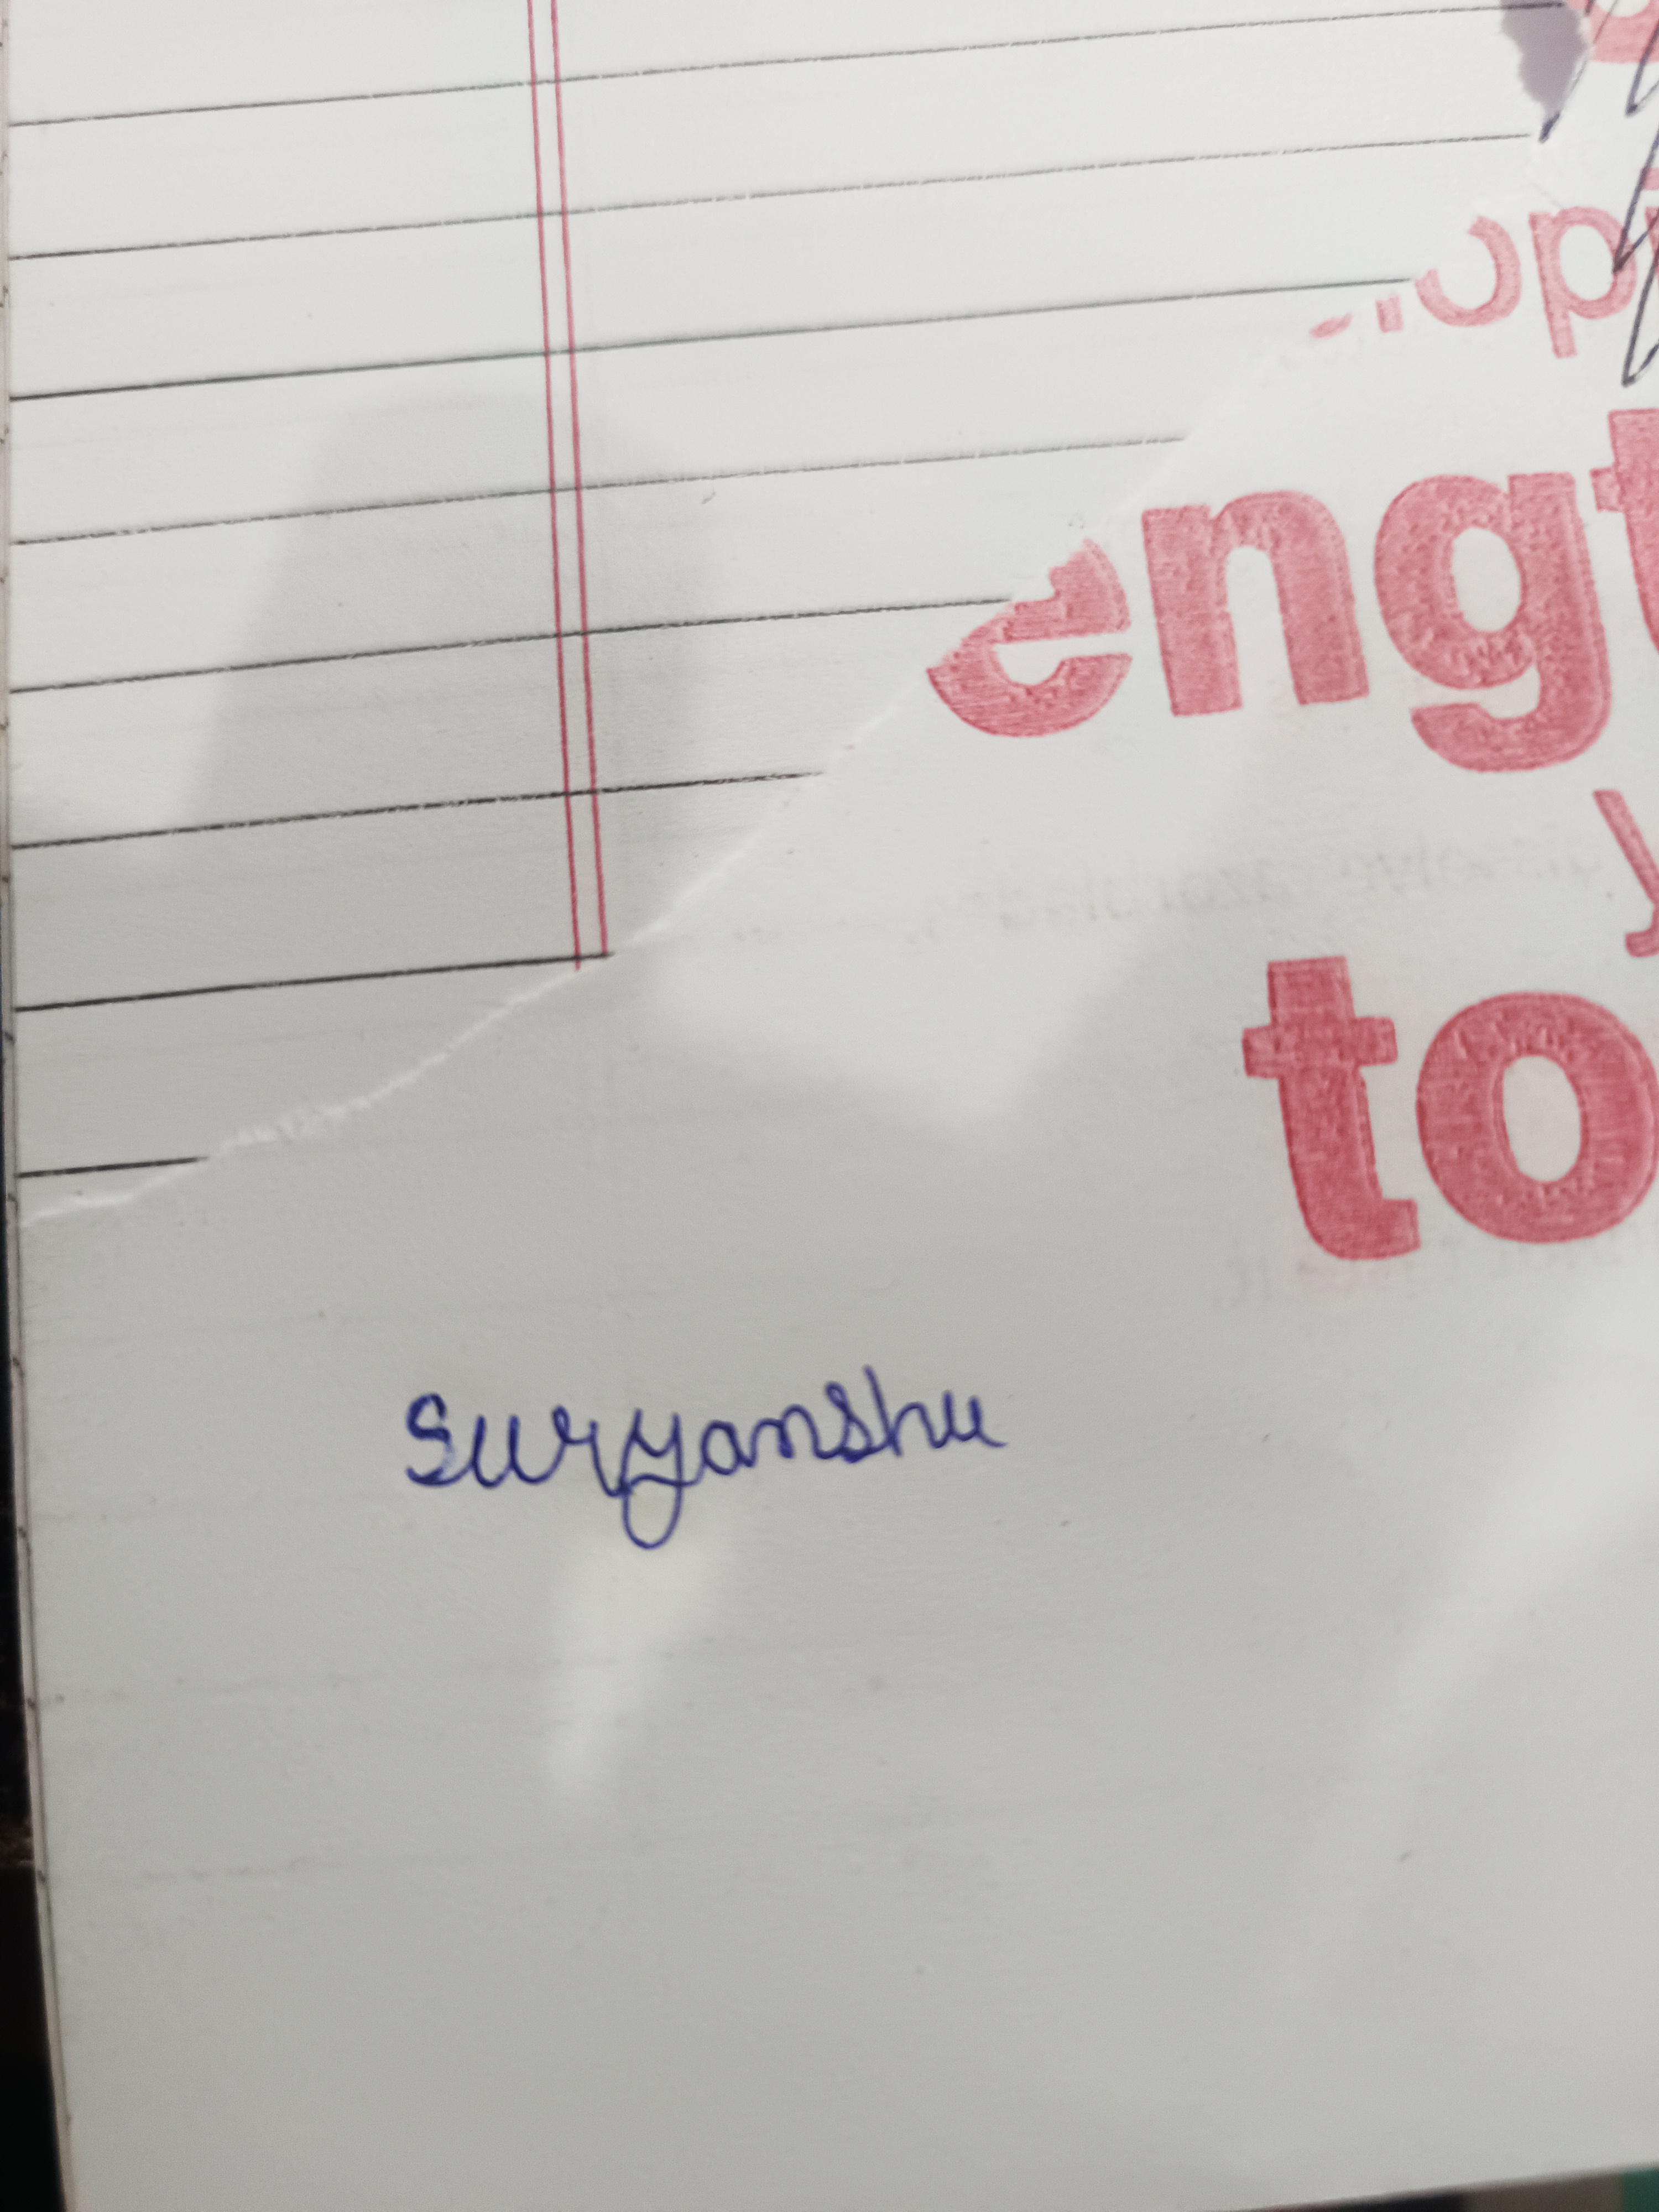 engt
to
Suryanshu